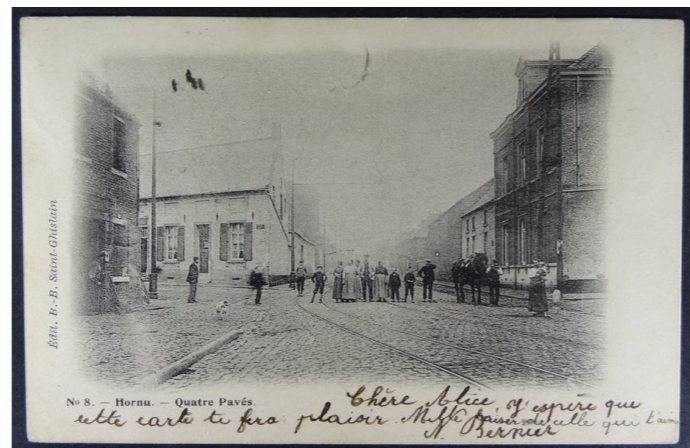 Édit. B.-B. Saint-Ghislain
No 8. — Hornu. — Quatre Pavés.
Chère Alice, j'espère que
cette carte te fera plaisir. Mille baisers de celle qui t'aime